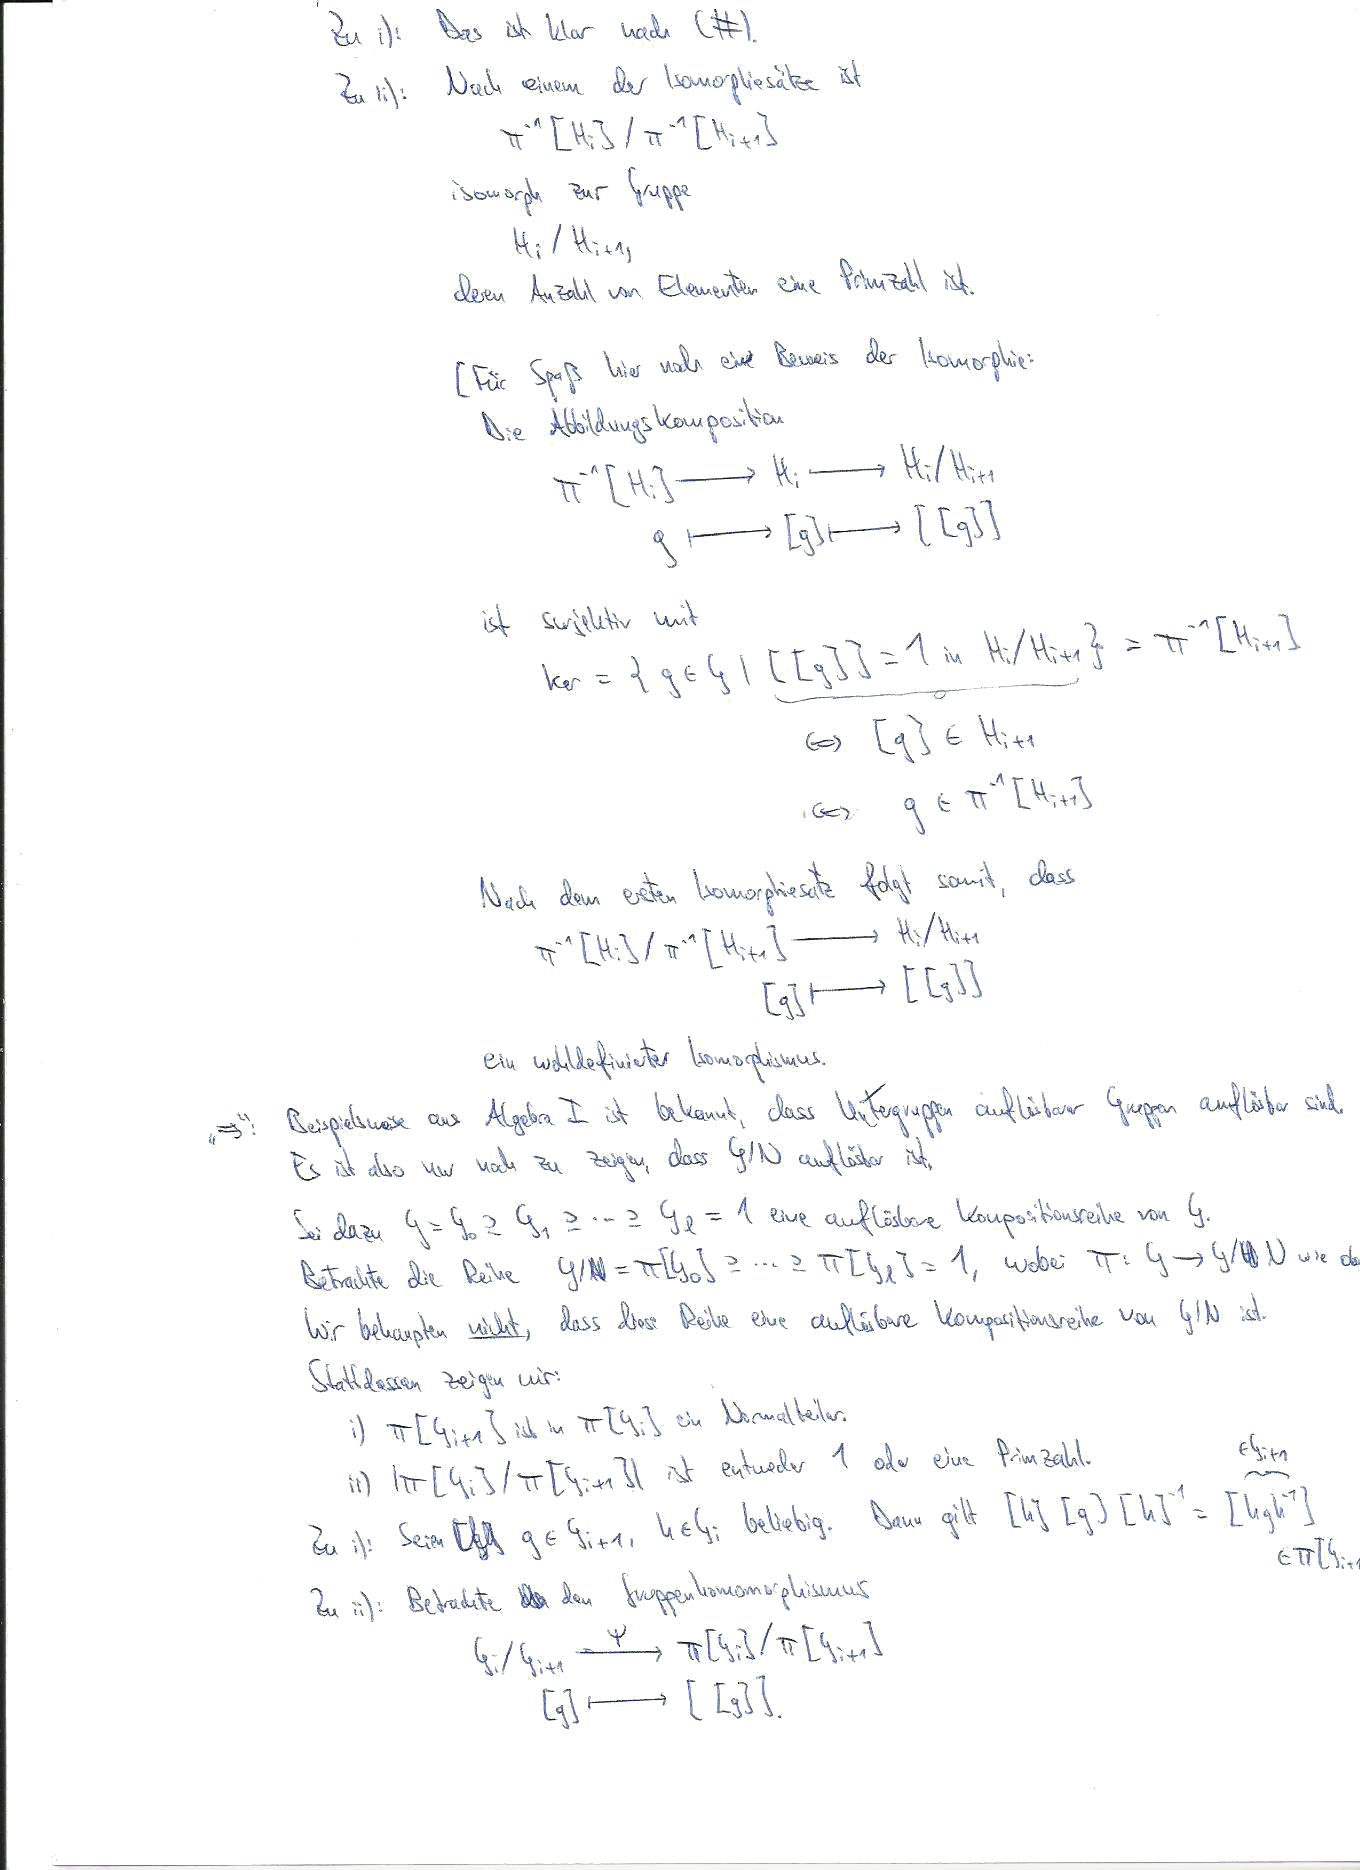 Zu i): Das ist klar nach (#).
Zu ii): Nach einem der Isomorphiesätze ist
π⁻¹[Hᵢ] / π⁻¹[Hᵢ₊₁]
isomorph zur Gruppe
Hᵢ / Hᵢ₊₁,
deren Anzahl von Elementen eine Primzahl ist.
[Für Spaß hier noch ein Beweis der Isomorphie:
Die Abbildungskomposition
π⁻¹[Hᵢ] ⟶ Hᵢ ⟶ Hᵢ/Hᵢ₊₁
g ⟼ [g] ⟼ [[g]]
ist surjektiv mit
ker = { g ∈ G | [[g]] = 1 in Hᵢ/Hᵢ₊₁ } = π⁻¹[Hᵢ₊₁]
⇔ [g] ∈ Hᵢ₊₁
⇔ g ∈ π⁻¹[Hᵢ₊₁]
Nach dem ersten Isomorphiesatz folgt somit, dass
π⁻¹[Hᵢ] / π⁻¹[Hᵢ₊₁] ⟶ Hᵢ/Hᵢ₊₁
[g] ⟼ [[g]]
ein wohldefinierter Isomorphismus.
„⇒“: Beispielsweise aus Algebra I ist bekannt, dass Untergruppen auflösbarer Gruppen auflösbar sind.
Es ist also nur noch zu zeigen, dass G/N auflösbar ist.
Sei dazu G = G₀ ≥ G₁ ≥ ... ≥ Gₗ = 1 eine auflösbare Kompositionsreihe von G.
Betrachte die Reihe G/N = π[G₀] ≥ ... ≥ π[Gₗ] = 1, wobei π: G → G/N wie
Wir behaupten nicht, dass diese Reihe eine auflösbare Kompositionsreihe von G/N ist.
Stattdessen zeigen wir:
i) π[Gᵢ₊₁] ist in π[Gᵢ] ein Normalteiler.
ii) |π[Gᵢ] / π[Gᵢ₊₁]| ist entweder 1 oder eine Primzahl.
∈Gᵢ₊₁
Zu i): Seien g ∈ Gᵢ₊₁, h ∈ Gᵢ beliebig. Dann gilt [h] [g] [h]⁻¹ = [hgh⁻¹]
∈ π[Gᵢ₊₁
Zu ii): Betrachte den Gruppenhomomorphismus
Gᵢ/Gᵢ₊₁ ⟶ψ π[Gᵢ] / π[Gᵢ₊₁]
[g] ⟼ [[g]].